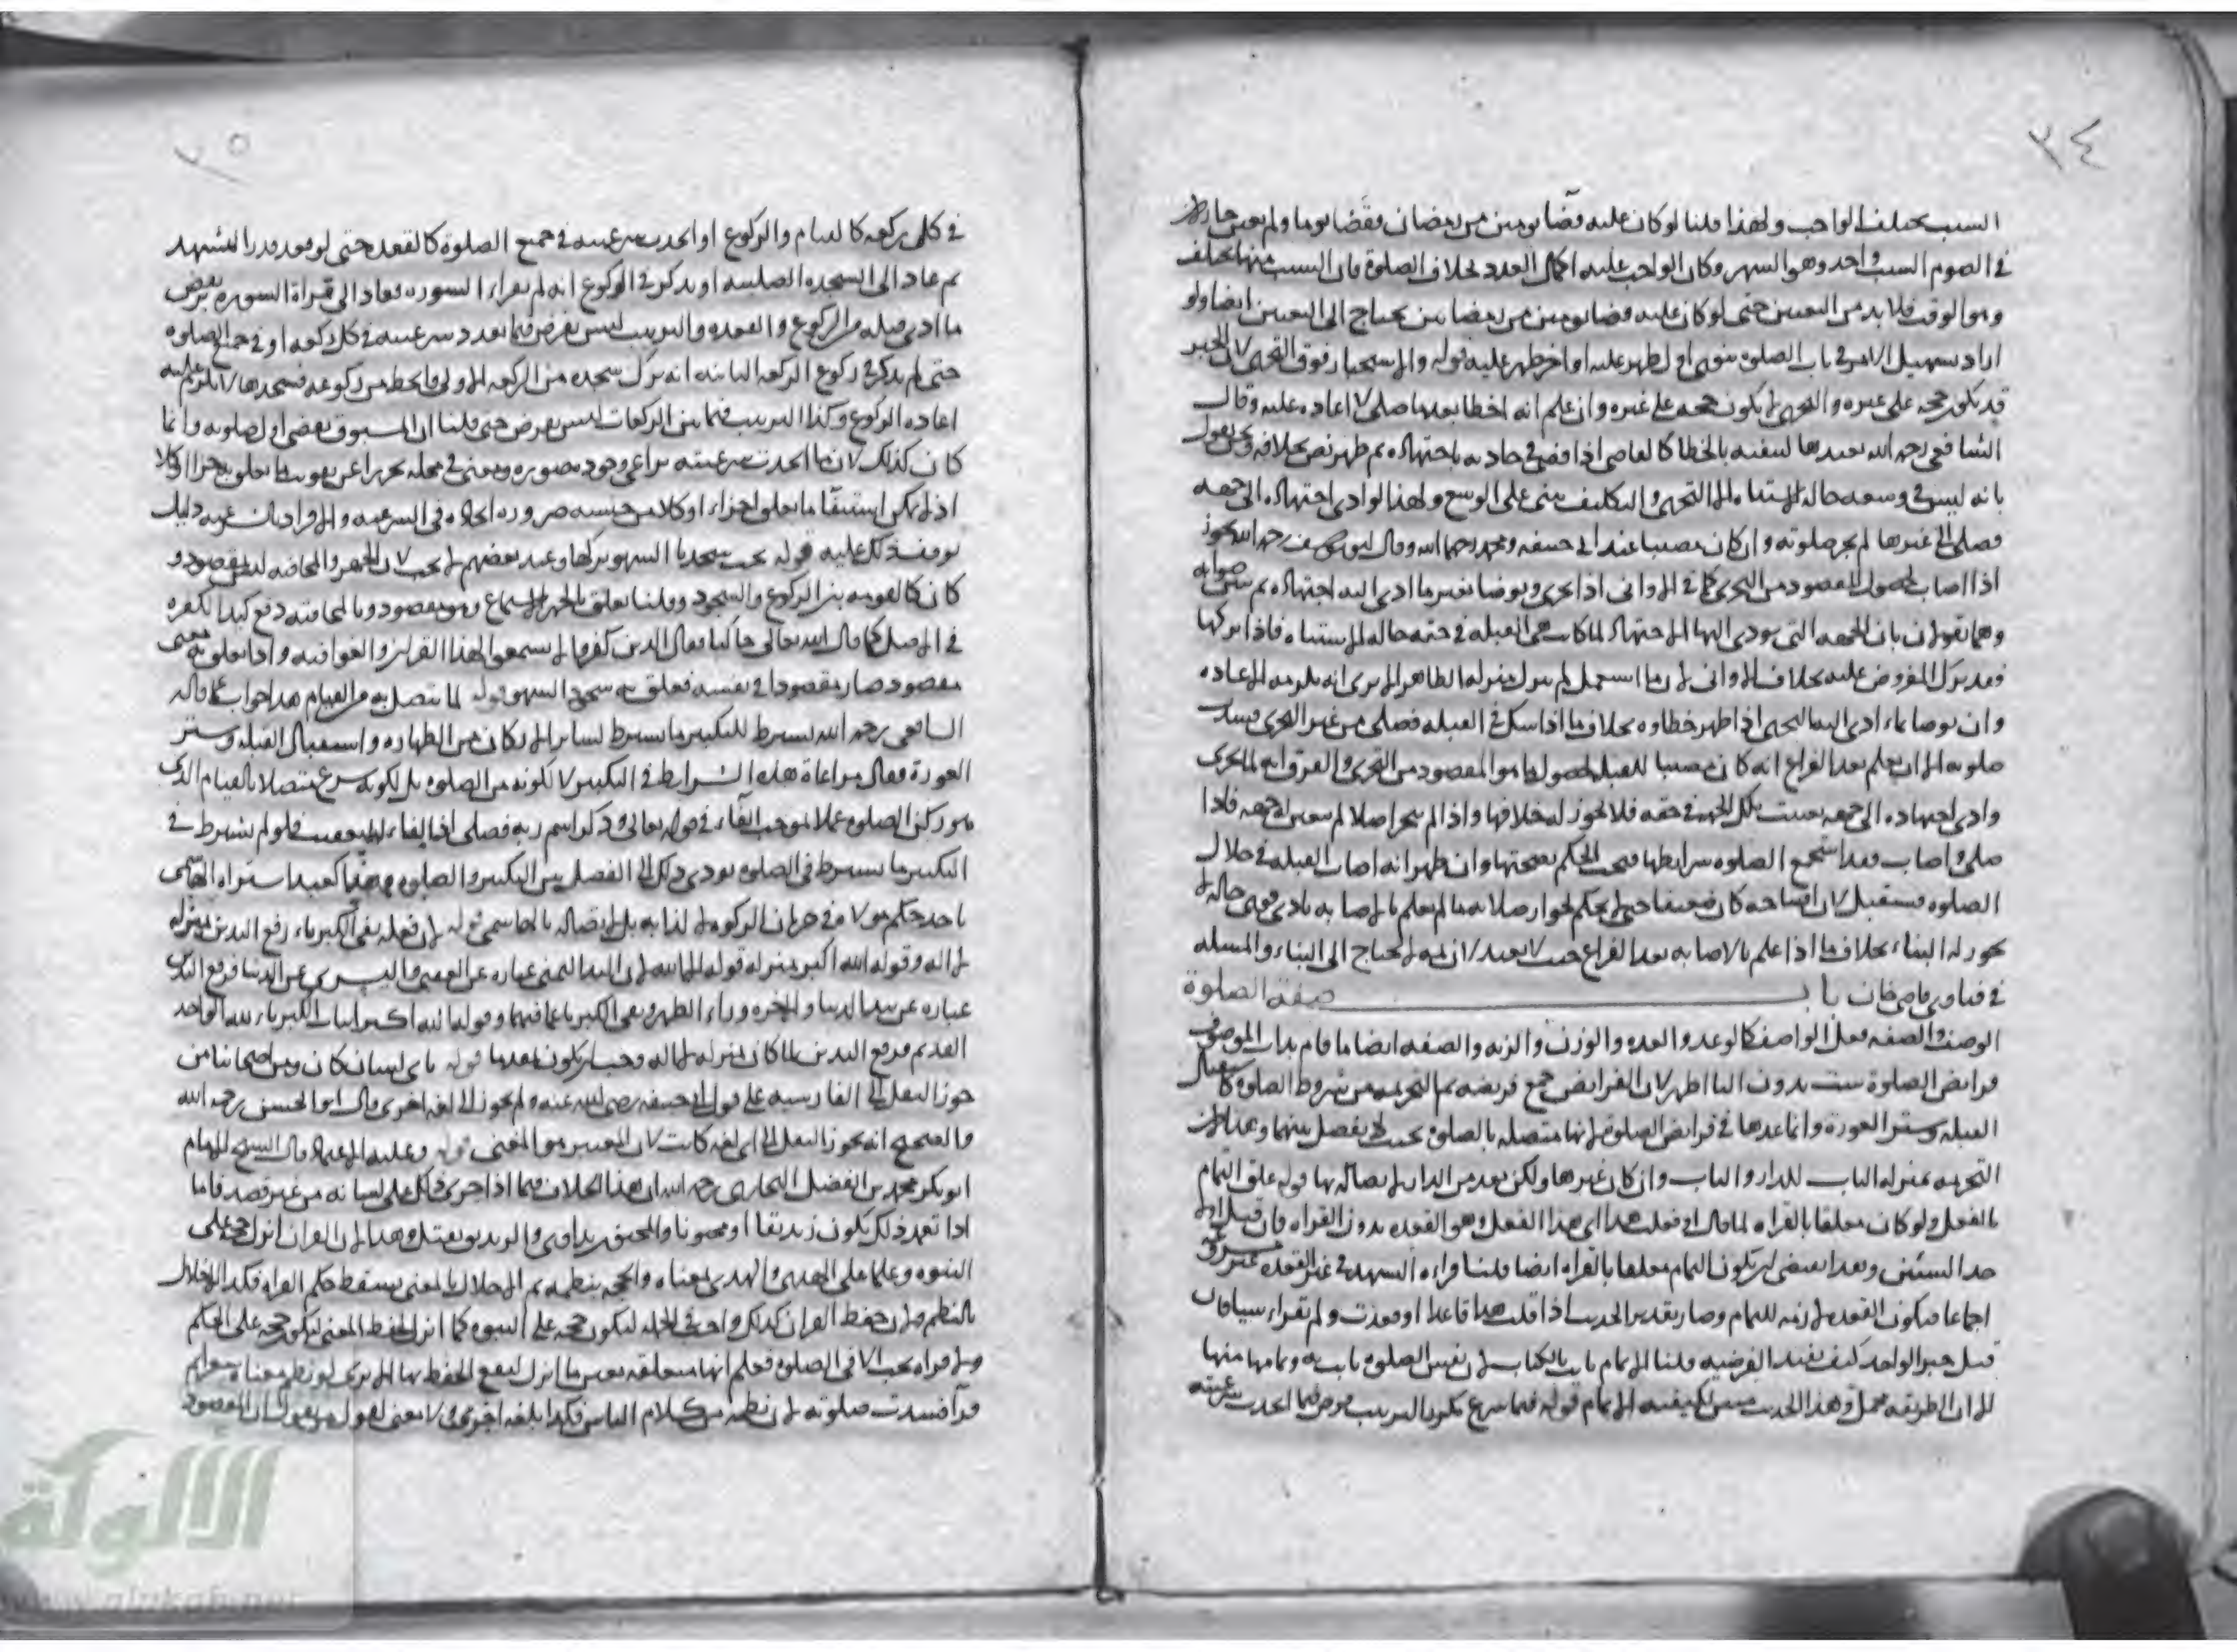 ٣٤
السبب يختلف الواجب ولهذا قلنا لو كان عليه قضا يومين من رمضان فقضا يوما ولم يعين جاز لان
في الصوم السبب واحد وهو الشهر وكان الواجب عليه اكمال العدد بخلاف الصلوة فان السبب منها مختلف
وهو الوقت فلا بد من التعيين حتى لو كان عليه قضا يومين من رمضانين يحتاج الى التعيين ايضا ولو
اراد تسهيل الامر في باب الصلوة ينوي اول ظهر عليه او اخر ظهر عليه قوله والاستخبار فوق التحري لان الخبر
قد يكون حجة على غيره والتحري لا يكون حجة على غيره وان علم انه اخطا بعدما صلى لا اعادة عليه وقال
الشافعي رحمه الله يعيدها لتيقنه بالخطا كالقاضي اذا قضى في حادثة باجتهاده ثم ظهر نص بخلافه ونحن نقول
بانه ليس في وسعه حالة الاشتباه الا التحري والتكليف يبتنى على الوسع ولهذا لو ادى اجتهاده الى جهة
فصلى الى غيرها لم يجز صلوته وان كان مصيبا عند ابي حنيفة ومحمد رحمهما الله وقال ابو يوسف رحمه الله يجوز
اذا اصاب لحصول المقصود من التحري كما في الاواني اذا تحرى وتوضا بغير ما ادى اليه اجتهاده ثم تبين صوابه
وهما يقولان بان الجهة التي يودي اليها الاجتهاد لما كانت هي القبلة في حقه حالة الاشتباه فاذا تركها
فقد ترك المفروض عليه بخلاف الاواني لان ما استعمل لم ينزل منزلة الطاهر الا يرى انه يلزمه الاعادة
وان توضا بماء ادى اليه التحري اذا ظهر خطاؤه بخلاف ما اذا شك في القبلة فصلى من غير التحري فسدت
صلوته الا ان يعلم بعد الفراغ انه كان مصيبا للقبلة لحصول ما هو المقصود من التحري والفرق انه لما تحرى
وادى اجتهاده الى جهة تعينت تلك الجهة في حقه فلا يجوز له خلافها واذا لم يتحر اصلا لم يتعين له جهة فاذا
صلى واصاب فقد استجمع الصلوة شرايطها فيجب الحكم بصحتها وان ظهر انه اصاب القبلة في خلال
الصلوة يستقبل لان افتتاحه كان ضعيفا حتى لا يحكم بجواز صلاته ما لم يعلم بالاصابة فاذا قوي حاله لا
يجوز له البناء بخلاف ما اذا علم بالاصابة بعد الفراغ حيث لا يعيد لانه لا يحتاج الى البناء والمسئلة
في فتاوى قاضي خان باب صفة الصلوة
الوصف والصفة فعل الواصف كالوعد والعدة والوزن والزنة والصفة ايضا ما قام بذات الموصوف
فرايض الصلوة ست بدون التا اظهر لان الفرايض جمع فريضة ثم التحريمة من شروط الصلوة كاستقبال
القبلة وستر العورة وانما عدها في فرايض الصلوة لانها متصلة بالصلوة بحيث لا يفصل بينهما وعد
التحريمة بمنزلة الباب للدار والباب وان كان غيرها ولكن يعد من الدار لاتصاله بها قوله علق التمام
بالفعل ولو كان معلقا بالقراة لما قال او فعلت هذا اي هذا الفعل وهو القعدة بدون القراة فان قيل اول
هذا السنن وبعد يقتضي ان يكون التمام معلقا بالقراة ايضا قلنا قراة التشهد في غير القعدة غير مشروع
اجماعا فيكون القعدة لازمة للتمام وصار تقدير الحديث اذا قلت هذا قاعدا او قعدت ولم تقرا شيا فان
قيل خبر الواحد كيف يفيد الفرضية قلنا الاتمام ثابت بالكتاب لان نفس الصلوة ثابت به وتمامها منها
الا ان الطريقة مجمل وهذا الحديث مبين لكيفية الاتمام قوله فيما شرع مكررا الترتيب فرض فيما اتحدت شرعيته
٣٥
في كل ركعة كالقيام والركوع او اتحدت شرعيته في جميع الصلوة كالقعدة حتى لو قعد قدر التشهد
ثم عاد الى السجدة الصلبية او تذكر في الركوع انه لم يقراء السورة فعاد الى قراة السورة يرتفض
ما ادى قبله من الركوع والقعدة والترتيب ليس بفرض فيما تعدد شرعيته في كل ركعة او في جميع الصلوة
حتى لو تذكر في ركوع الركعة الثانية انه ترك سجدة من الركعة الاولى فانحط من ركوعه فسجدها لا يلزم عليه
اعادة الركوع وكذا الترتيب فيما بين الركعات ليس بفرض حتى قلنا ان المسبوق يقضي اول صلوته وانما
كان كذلك لان ما اتحدت شرعيته يراعى وجوده صورة ومعنى في محله تحرزا عن تفويت ما تعلق به جزا او كلا
اذ لا يمكن استيفاء ما تعلق اجزاء او كلا من جنسه ضرورة اتحاده في الشرعية والافراد
توقف ذلك عليه قوله يجب سجدتا السهو بتركها وعند بعضهم لا يجب لان الجهر والمخافتة ليس بمقصود
كان كالقومة بين الركوع والسجود وقلنا تعلق بالجهر الاسماع وهو مقصود وبالمخافتة دفع كيد الكفرة
في الاصل كما قال الله تعالى حاكيا وقال الذين كفروا لا تسمعوا لهذا القران والغوا فيه واذا تعلق به معنى
مقصود صار مقصودا في نفسه فتعلق به سجود السهو قوله لما يتصل به من القيام هذا جواب عما قاله
الشافعي رحمه الله يشترط للتكبير ما يشترط لساير الاركان من الطهارة واستقبال القبلة وستر
العورة فقال مراعاة هذه الشرايط في التكبير لا لكونه من الصلوة بل لكونه شرع متصلا بالقيام الذي
هو ركن الصلوة عملا بموجب الفاء في قوله تعالى وذكر اسم ربه فصلى اذ الفاء للتعقيب فلو لم يشترط في
التكبير ما يشترط في الصلوة يودي ذلك الى الفصل بين التكبير والصلوة وهذا كعبد اشتراه الهاشمي
ياخذ حكم مولاه في حرمان الزكوة لا لذاته بل لاتصاله بالهاشمي قوله لان فعله نفي الكبرياء رفع اليدين بمنزلة
لا اله وقوله الله اكبر بمنزلة قوله الا الله لان اليد اليمنى عبارة عن العقبى واليسرى عن الدنيا فرفع اليدين
عبارة عن نبذ الدنيا والاخرة وراء الظهر ونفي الكبريا عما فيهما وقوله الله اكبر اثبات الكبرياء لله الواحد
القديم فرفع اليدين لما كان بمنزلة لا اله وجب ان يكون مقدما قوله باي لسان كان ومن اصحابنا من
جوز النقل الى الفارسية على قول ابي حنيفة رضي الله عنه ولم يجوز الى لغة اخرى قال ابو الحسن رحمه الله
والصحيح انه يجوز النقل الى اي لغة كانت لان المعتبر هو المعنى قوله وعليه الاعتماد قال الشيخ الامام
ابو بكر محمد بن الفضل البخاري رحمه الله ان هذا الخلاف فيما اذا جرى ذلك على لسانه من غير قصد فاما
اذا تعمد ذلك يكون زنديقا او مجنونا والمجنون يداوى والزنديق يقتل وهذا لان القران انزل حجة على
النبوة وعلما على الهدى والهدى بمعناه والحجة بنظمه ثم الاخلال بالمعنى يسقط حكم القراة فكذا الاخلال
بالنظم ولان حفظ القران كذلك واجب في الجملة ليكون حجة على النبوة كما انزل لحفظ المعنى ليكون حجة على الحكم
ولا قراة يجب الا في الصلوة فعلم انها متعلقة بعين ما انزل ليقع الحفظ بها الا يرى لو نظم معناه
قرآ فسدت صلوته لان نظمه من كلام الناس فكذا بلغة اخرى